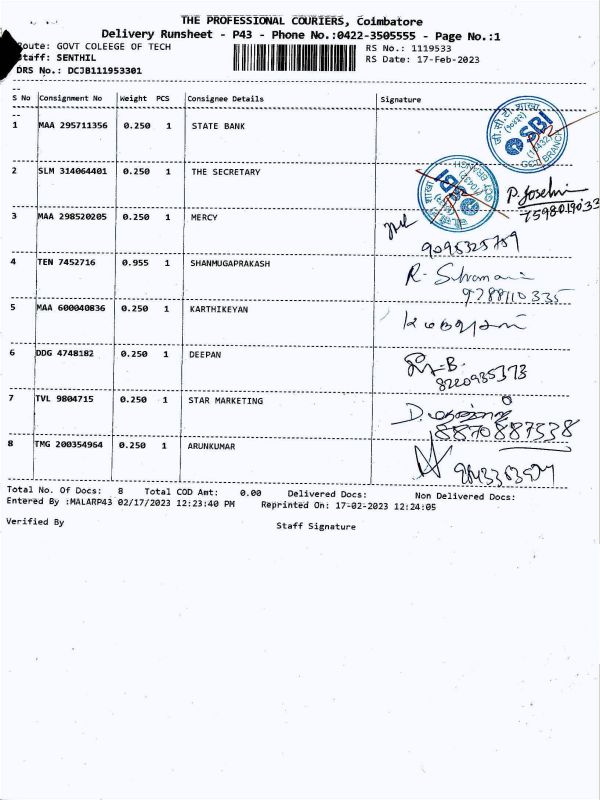 THE PROFESSIONAL COURIERS, Coimbatore
Delivery Runsheet - P43 - Phone No.:0422-3505555 - Page No.:1
Route: GOVT COLEEGE OF TECH
RS No.: 1119533
Staff: SENTHIL
RS Date: 17-Feb-2023
DRS No.: DCJB111953301
S No Consignment No Weight PCS Consignee Details Signature
1 MAA 295711356 0.250 1 STATE BANK
SBI
2 SLM 314064401 0.250 1 THE SECRETARY
SBI
P. Joselin
7598019033
3 MAA 298520205 0.250 1 MERCY
9095325759
4 TEN 7452716 0.955 1 SHANMUGAPRAKASH
9788110335
5 MAA 600040836 0.250 1 KARTHIKEYAN
6 DDG 4748182 0.250 1 DEEPAN
8220935373
7 TVL 9804715 0.250 1 STAR MARKETING
8870887338
8 TMG 200354964 0.250 1 ARUNKUMAR
Total No. Of Docs: 8 Total COD Amt: 0.00 Delivered Docs: Non Delivered Docs:
Entered By :MALARP43 02/17/2023 12:23:40 PM Reprinted On: 17-02-2023 12:24:05
Verified By
Staff Signature